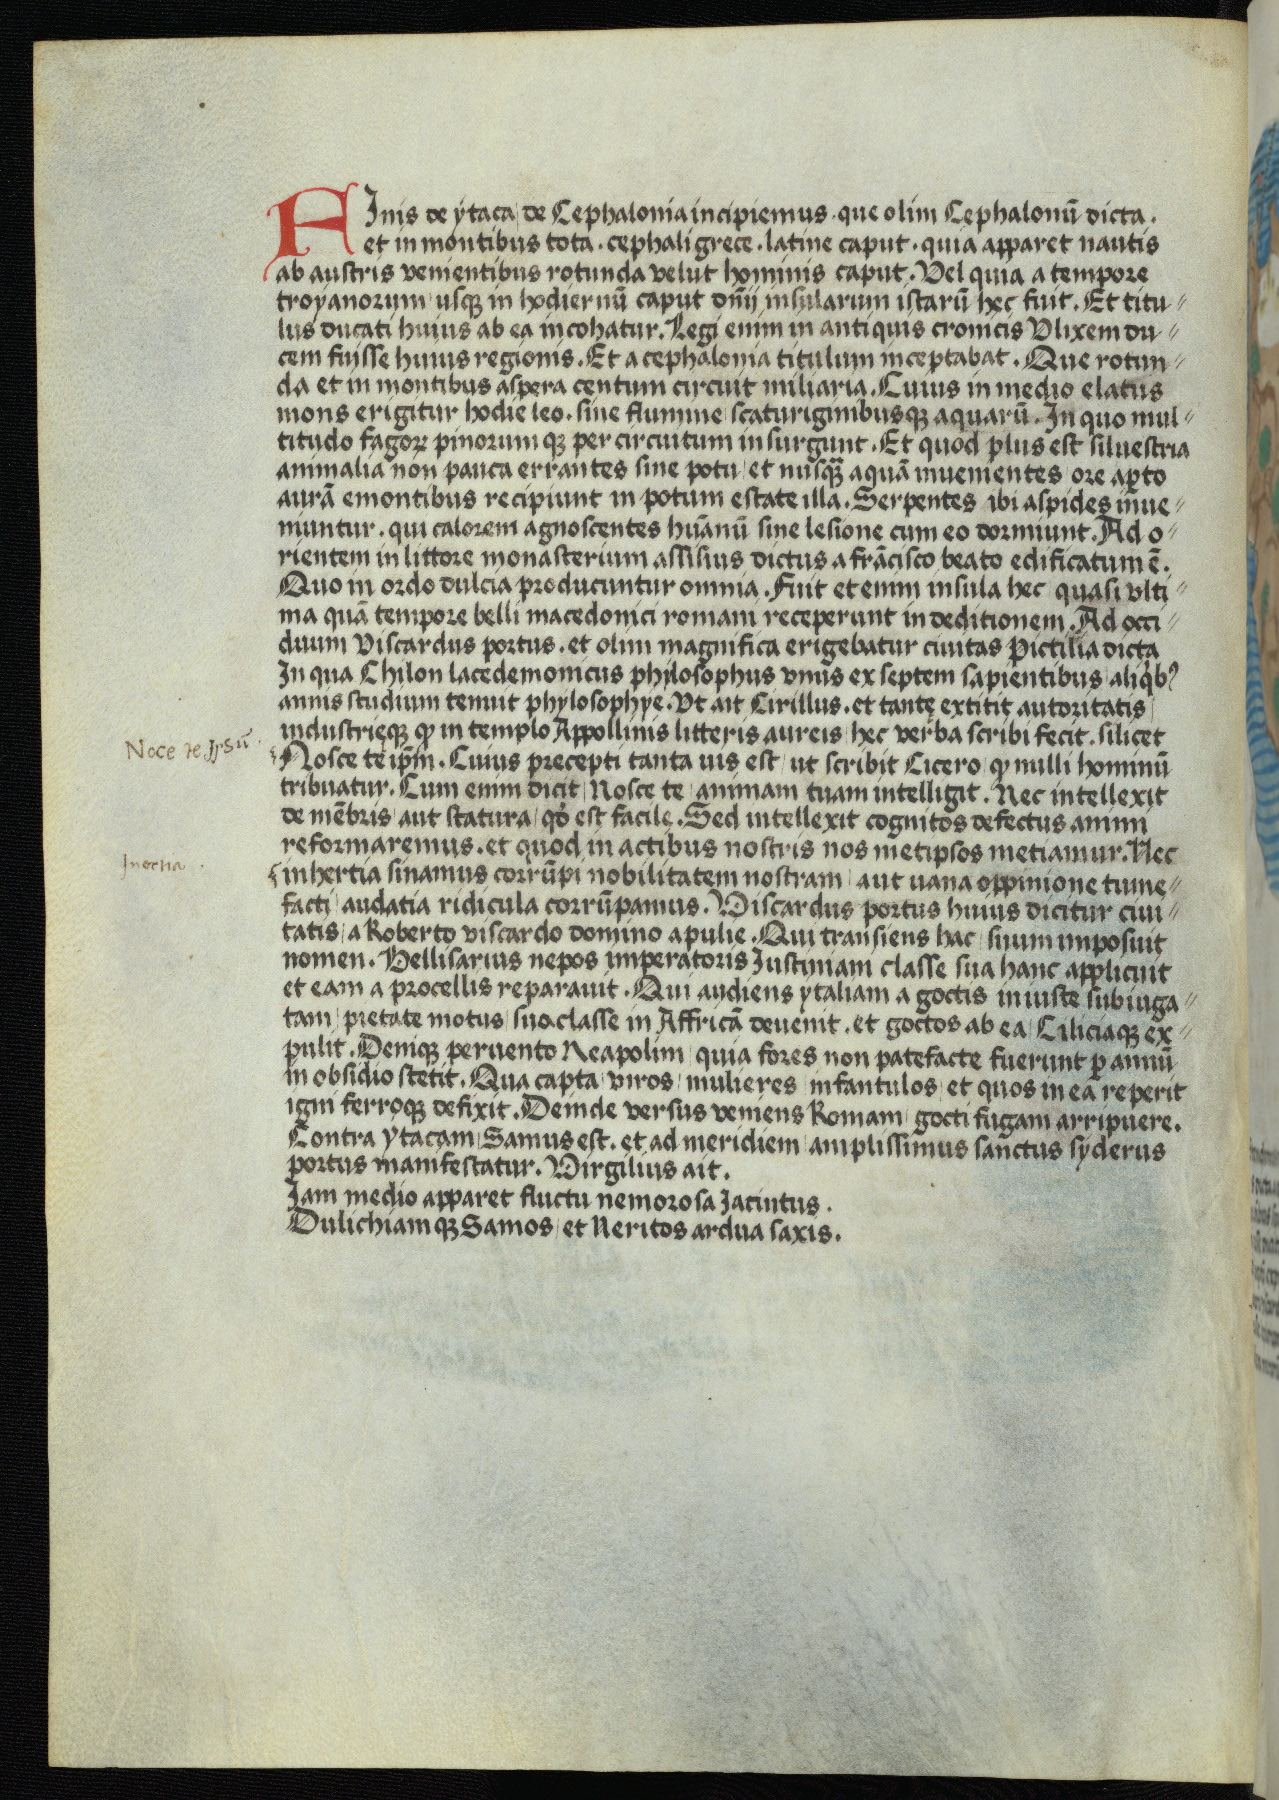 FInis de ÿtaca / de Cephalonia incipiemus · que olim Cephalonū dicta ·
et in montibus tota · cephali grece · latine caput · quia apparet nautis
ab austris venientibus rotunda velut hominis caput. Vel quia a tempore
troyanorum / usqꝫ in hodiernū caput dn̄ij insularum istarū hec fuit. Et titu⸗
lus ducati huius ab ea incohatur. Legi enim in antiquis cronicis Vlixem du⸗
cem fuisse huius regionis. Et a cephalonia titulum inceptabat. Que rotun⸗
da et in montibus aspera centum circuit miliaria. Cuius in medio elatus
mons erigitur hodie leo. sine flumine / scaturiginibusqꝫ aquarū. In quo mul⸗
titudo fagoꝝ pinorumqꝫ per circuitum insurgunt. Et quod plus est siluestria
animalia non pauca errantes sine potu / et nusqꝫ̄ aquā inuenientes / ore aꝑto
aurā e montibus recipiunt in potum estate illa. Serpentes ibi aspides inue⸗
niuntur. qui calorem agnoscentes huānū sine lesione cum eo dormiunt. Ad o⸗
rientem in littore monasterium assisius dictus a frācisco beato edificatum ē.
Quo in ordo dulcia producuntur omnia. Fuit etenim insula hec quasi vlti⸗
ma quā tempore belli macedonici romani receperunt in deditionem. Ad occi⸗
duum Viscardus portus. et olim magnifica erigebatur ciuitas Pictilia dicta
In qua Chilon lacedemonicus phylosophus vnus ex septem sapientibus / aliq̇bꝰ
annis studium tenuit phylosophye. Vt ait Cirillus. et tantę extitit autoritatis /
industrięqꝫ ꝙ in templo Appollinis litteris aureis / hec verba scribi fecit. silicet
Nosce te ip̄m. Cuius precepti tanta uis est / ut scribit Cicero / ꝙ nulli hominū
tribuatur. Cum enim dicit / Nosce te / animam tuam intelligit. Nec intellexit
de mēbris / aut statura / qd̓ est facile. Sed intellexit cognitos defectus animi
reformaremus. et quod in actibus nostris nos metipsos metiamur. Nec
inhertia sinamus corrūpi nobilitatem nostram / aut uana oppinione tume⸗
facti / audatia ridicula corrūpamus. Viscardus portus huius dicitur ciui⸗
tatis / a Roberto viscardo domino apulie. Qui transiens hac / suum imposuit
nomen. Bellisarius nepos imperatoris Justiniani classe sua hanc applicuit
et eam a procellis reparauit. Qui audiens ÿtaliam a goctis iniuste subiuga⸗
tam / pietate motus / sua classe in Affricā deuenit. et goctos ab ea / Ciliciaqꝫ ex⸗
pulit. Deniqꝫ peruento Neapolim / quia fores non patefacte fuerunt ꝑ annū
in obsidio stetit. Qua capta / viros / mulieres / infantulos / et quos in ea reperit
igni ferroqꝫ defixit. Deinde versus veniens Romam / gocti fugam arripuere.
Contra ytacam / Samus est. et ad meridiem / amplissimus sanctus syderus
portus manifestatur. Virgilius ait.
Jam medio apparet fluctu nemorosa Jacintus.
Dulichiamqꝫ Samos / et Neritos ardua saxis.
Noce te Ipsū ·
Inertia ·